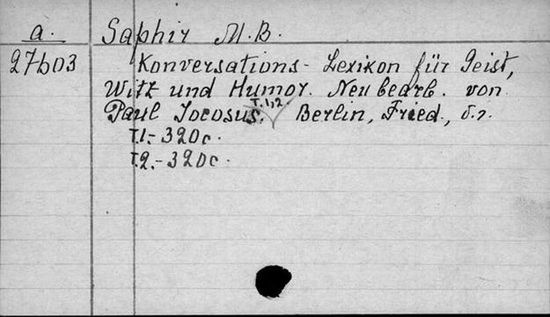 a. Saphir M.B.
27603 Konversations-Lexikon für Geist,
Witz und Humor. Neubearb. von
Paul Jocosus. T.1,2 Berlin, Fried., s.
T.1.- 320 c.
T.2.- 320 c.